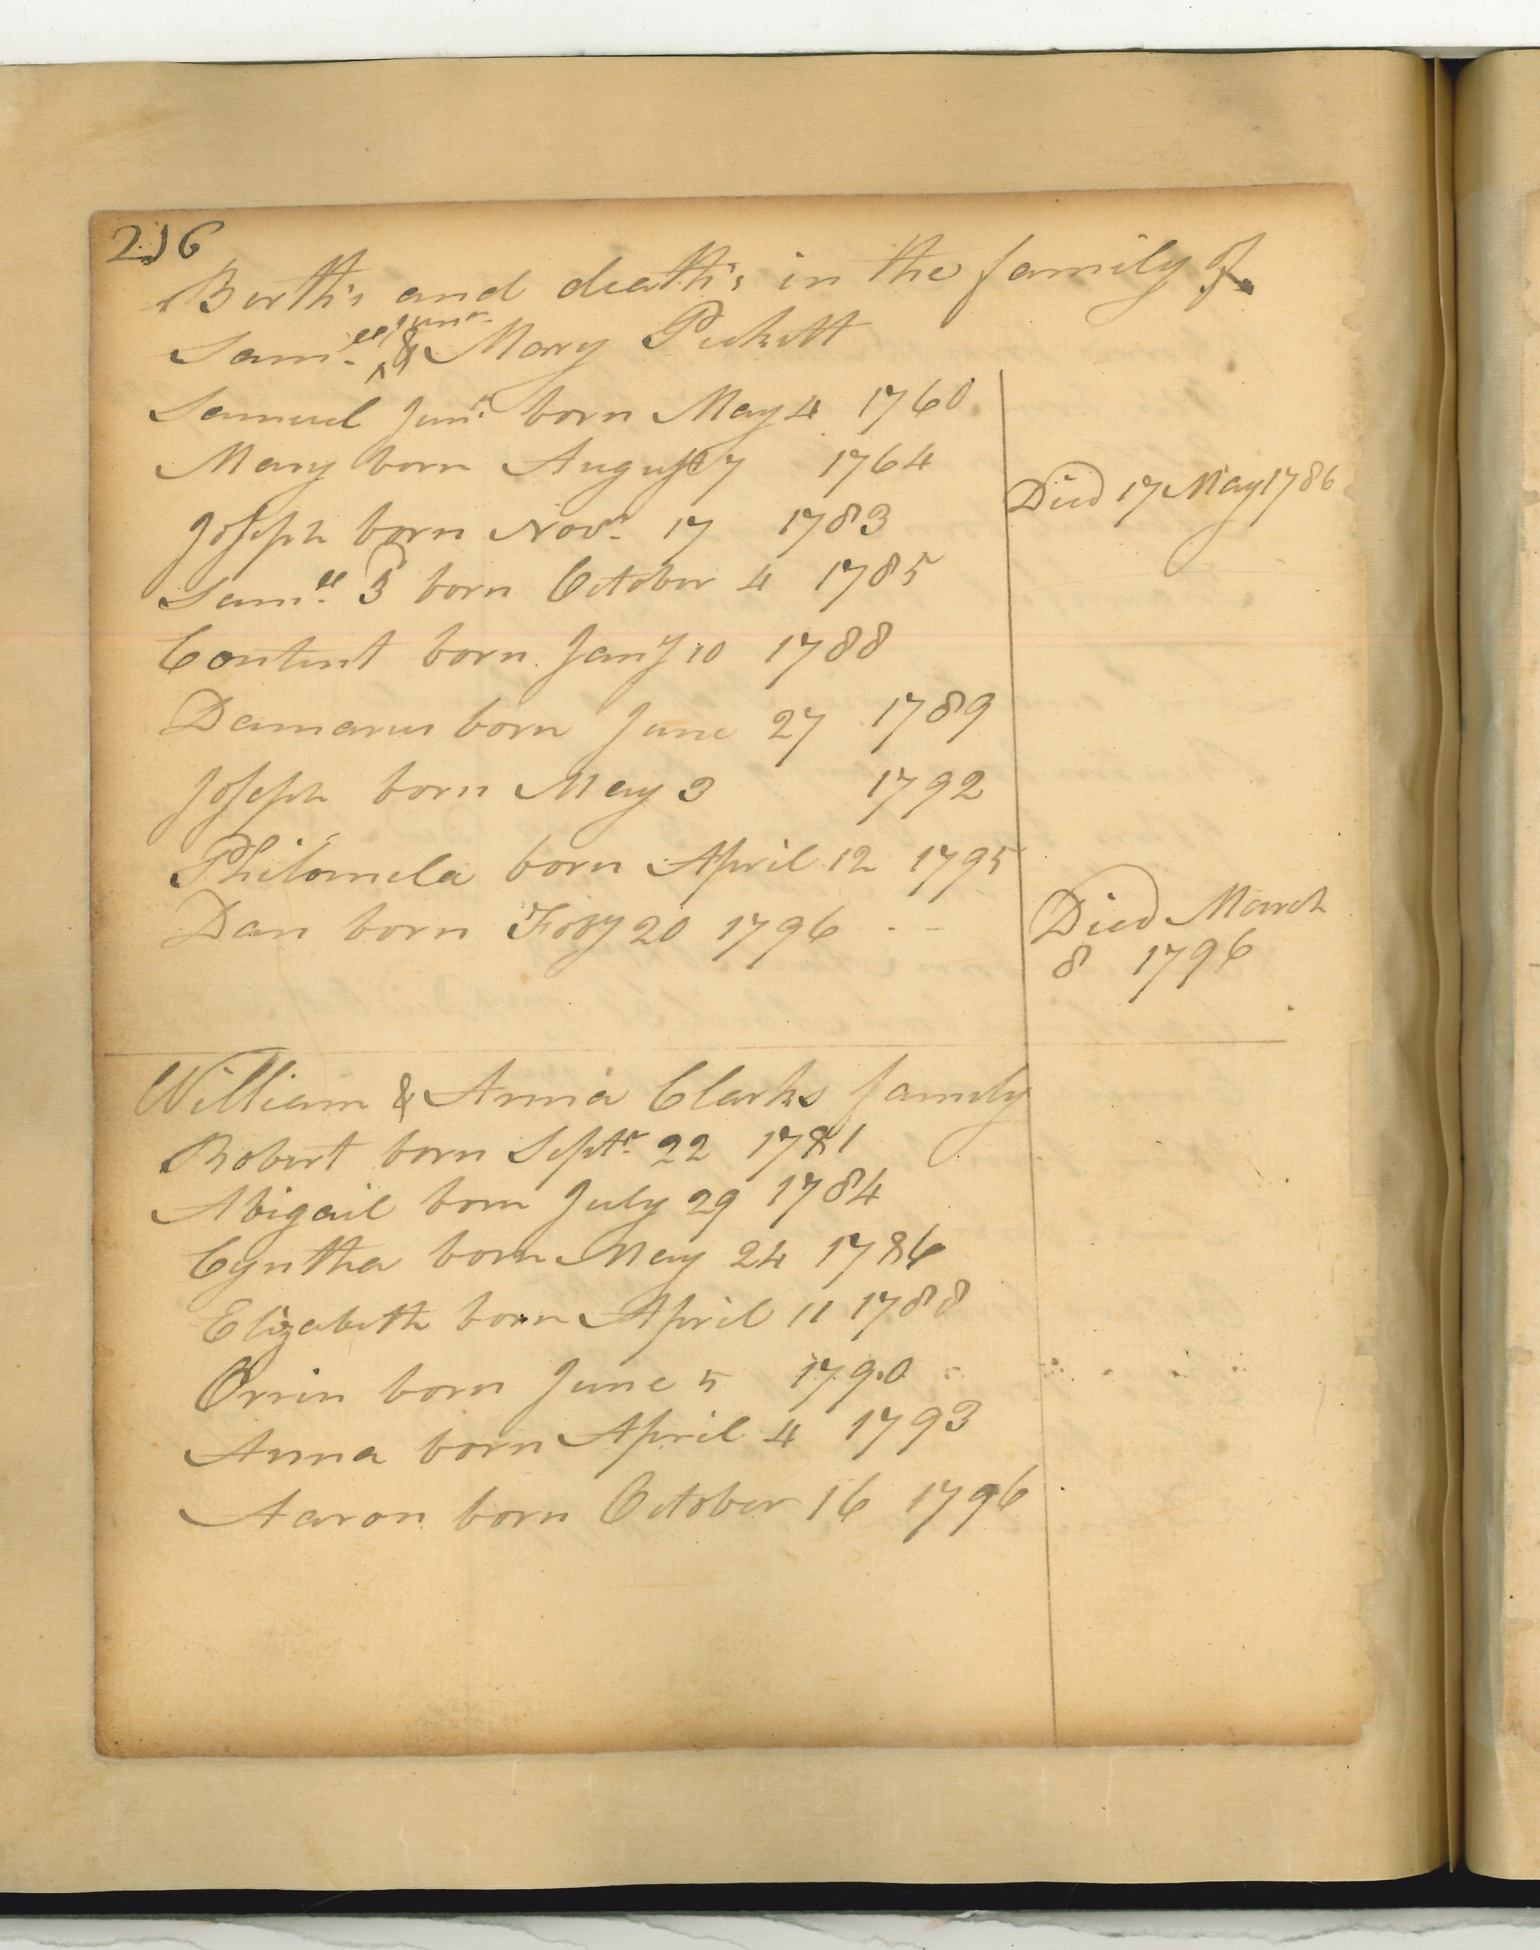 216
Birth's and death's in the family of
Sam.ll junr & Mary Pickett
Samuel Junr. born May 4 1760
Mary born August 7 1764
Joseph born Novr. 17 1783 Died 17 May 1786
Sam.ll 3d born October 4 1785
Content born Jany 10 1788
Damarus born June 27 1789
Joseph born May 3 1792
Philomela born April 12 1795
Dan born Feby 20 1796 - - Died March
8 1796
William & Anna Clarks family
Robert born Septr. 22 1781
Abigail born July 29 1784
Cyntha born May 24 1786
Elizabeth born April 11 1788
Orrin born June 5 1790
Anna born April 4 1793
Aaron born October 16 1796